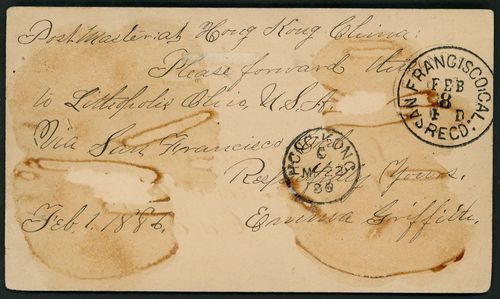 Postmaster: at Hong Kong China:
Please forward this
to Lithopolis Ohio, U.S.A.
Via San Francisco
Respectfully Yours.
Feb. 1. 1886. Emma Griffith.
SAN FRANCISCO, CAL.
FEB
8
D
REC'D.
HONG KONG
C
MR 22
86